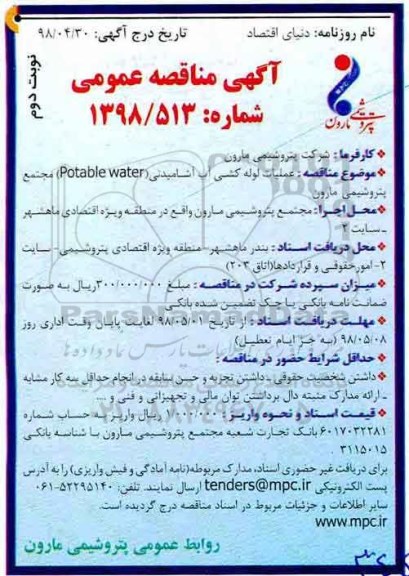 نام روزنامه: دنیای اقتصاد
تاریخ درج آگهی: ۹۸/۰۴/۳۰
نوبت دوم
آگهی مناقصه عمومی
شماره: ۱۳۹۸/۵۱۳
MPC
پتروشیمی مارون
کارفرما: شرکت پتروشیمی مارون
موضوع مناقصه: عملیات لوله کشی آب آشامیدنی (Potable water) مجتمع
پتروشیمی مارون
محل اجرا: مجتمع پتروشیمی مارون واقع در منطقه ویژه اقتصادی ماهشهر
-سایت ۲-
محل دریافت اسناد: بندر ماهشهر- منطقه ویژه اقتصادی پتروشیمی- سایت
۲- امور حقوقی و قراردادها (اتاق ۲۰۳)
میزان سپرده شرکت در مناقصه: مبلغ ۳۰۰/۰۰۰/۰۰۰ ریال به صورت
ضمانت نامه بانکی یا چک تضمین شده بانکی
مهلت دریافت اسناد: از تاریخ ۹۸/۰۵/۰۱ لغایت پایان وقت اداری روز
۹۸/۰۵/۰۸ (به جز ایام تعطیل)
حداقل شرایط حضور در مناقصه:
داشتن شخصیت حقوقی - داشتن تجربه و حسن سابقه در انجام حداقل سه کار مشابه
- ارائه مدارک مثبته دال برداشتن توان مالی و تجهیزاتی و فنی و ....
قیمت اسناد و نحوه واریز: ریال واریز به حساب شماره
۶۰۱۷۰۳۲۲۸۱ بانک تجارت شعبه مجتمع پتروشیمی مارون با شناسه بانکی
۳۱۱۵۰۱۵ .
برای دریافت غیر حضوری اسناد، مدارک مربوطه (نامه آمادگی و فیش واریزی) را به آدرس
پست الکترونیکی tenders@mpc.ir ارسال نمایند. تلفن: ۵۲۲۹۵۱۴۰-۰۶۱
سایر اطلاعات و جزئیات مربوط در اسناد مناقصه درج گردیده است.
www.mpc.ir
روابط عمومی پتروشیمی مارون
ParsNamadData